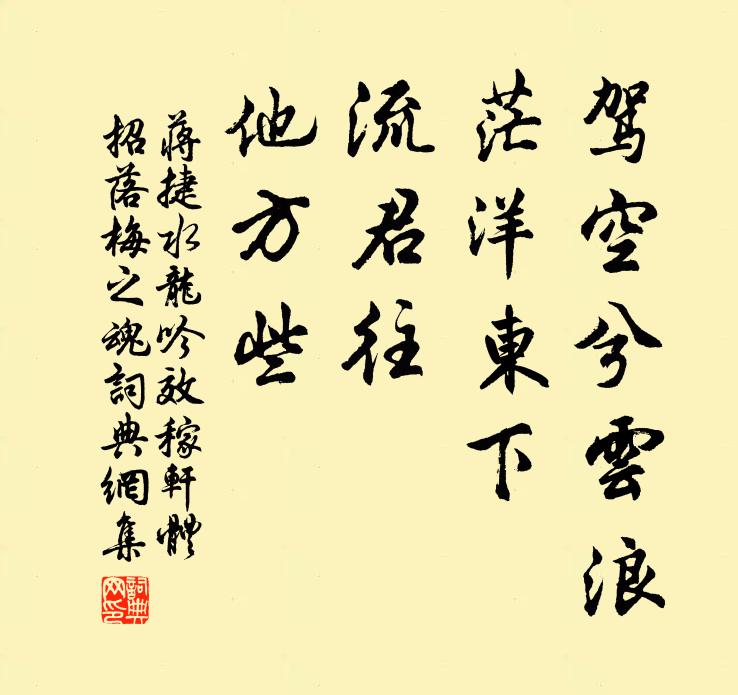 駕空兮雲浪
茫洋東下
流君往
他方些
蔣捷水龍吟效稼軒體
招落梅之魂詞典網集
詞典网印